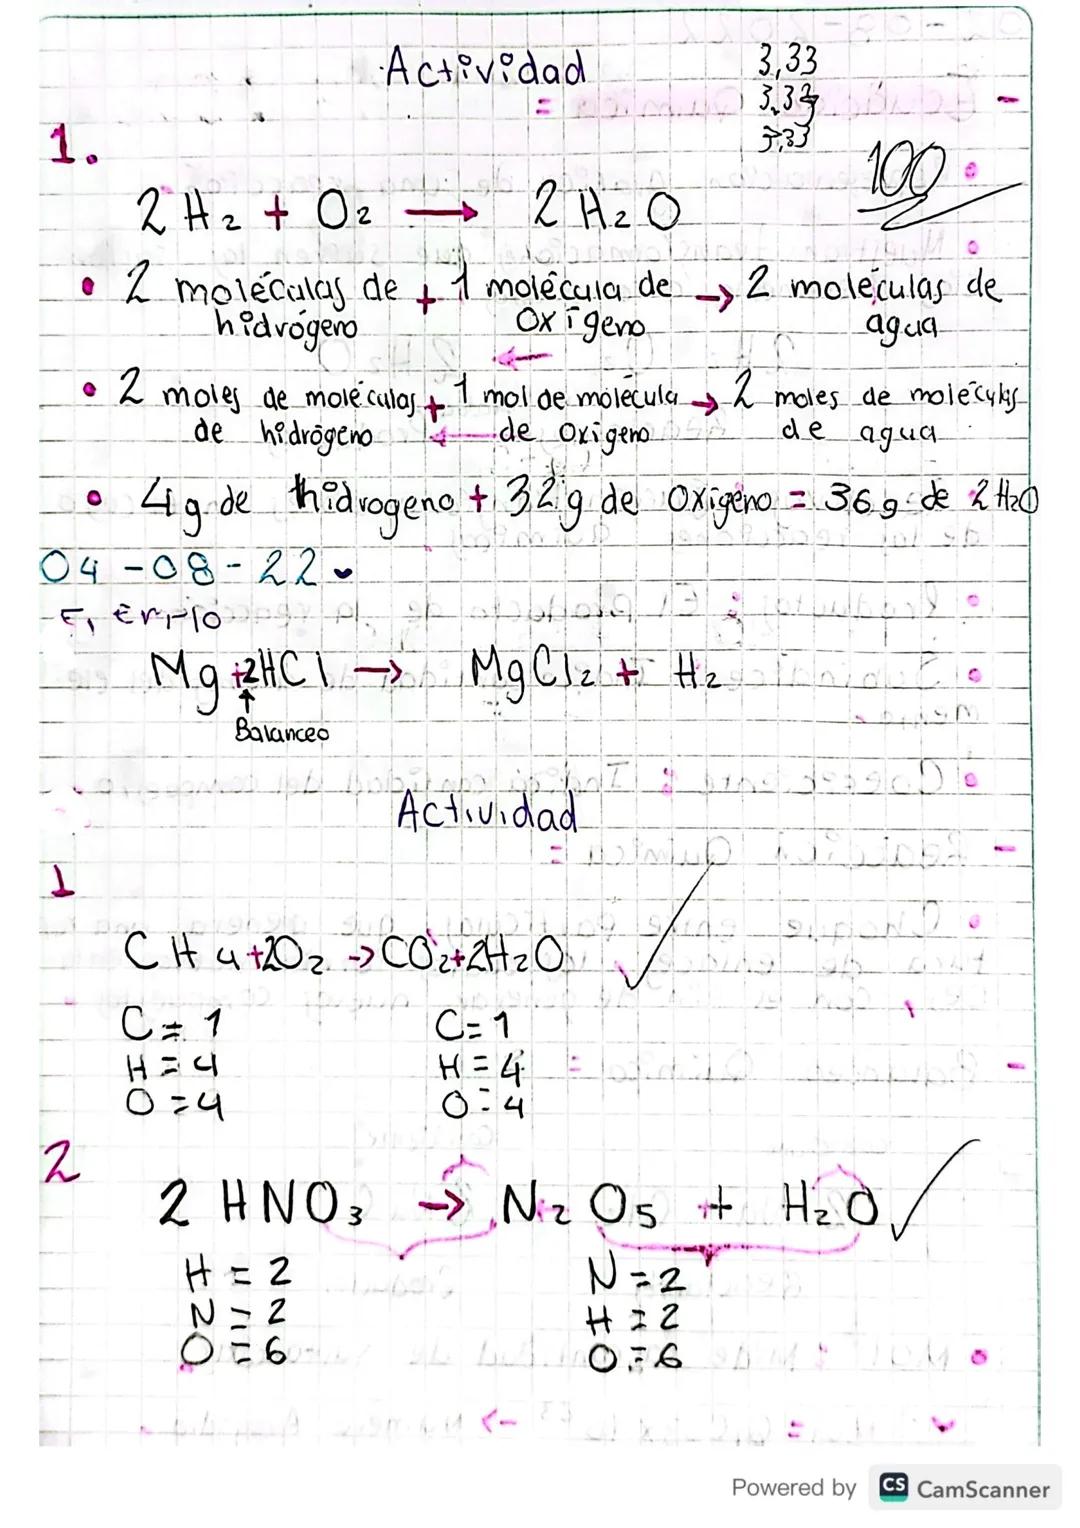 Actividad
3,33
3,33
3,33
100
1.
2 H2 + O2 → 2 H2O
• 2 moléculas de hidrógeno + 1 molécula de Oxígeno → 2 moléculas de agua
• 2 moles de moléculas de hidrógeno + 1 mol de molécula de Oxígeno → 2 moles de moléculas de agua
• 4g de hidrogeno + 32 g de Oxígeno = 36 g de 2 H2O
04-08-22
Mg + 2HCl → MgCl2 + H2
↑
Balanceo
Actividad
1
CH4 + 2O2 → CO2 + 2H2O
C = 1 C = 1
H = 4 H = 4
O = 4 O = 4
2
2 HNO3 → N2O5 + H2O
H = 2 N = 2
N = 2 H = 2
O = 6 O = 6
Powered by CS CamScanner